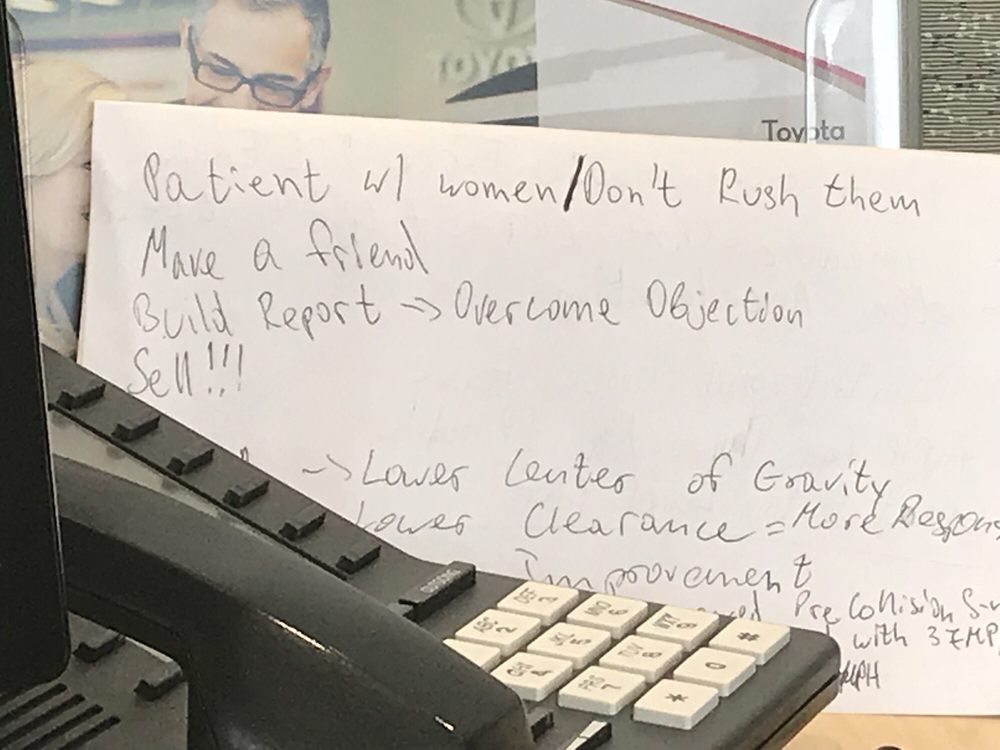 TOYOTA
Toyota
Patient w/ women/Don't Rush them
Make a friend
Build Report -> Overcome Objection
Sell!!!
-> Lower Center of Gravity
Lower Clearance = More Respons
Improvement
Pre Collision
with 37MP
MPH
#
0
*